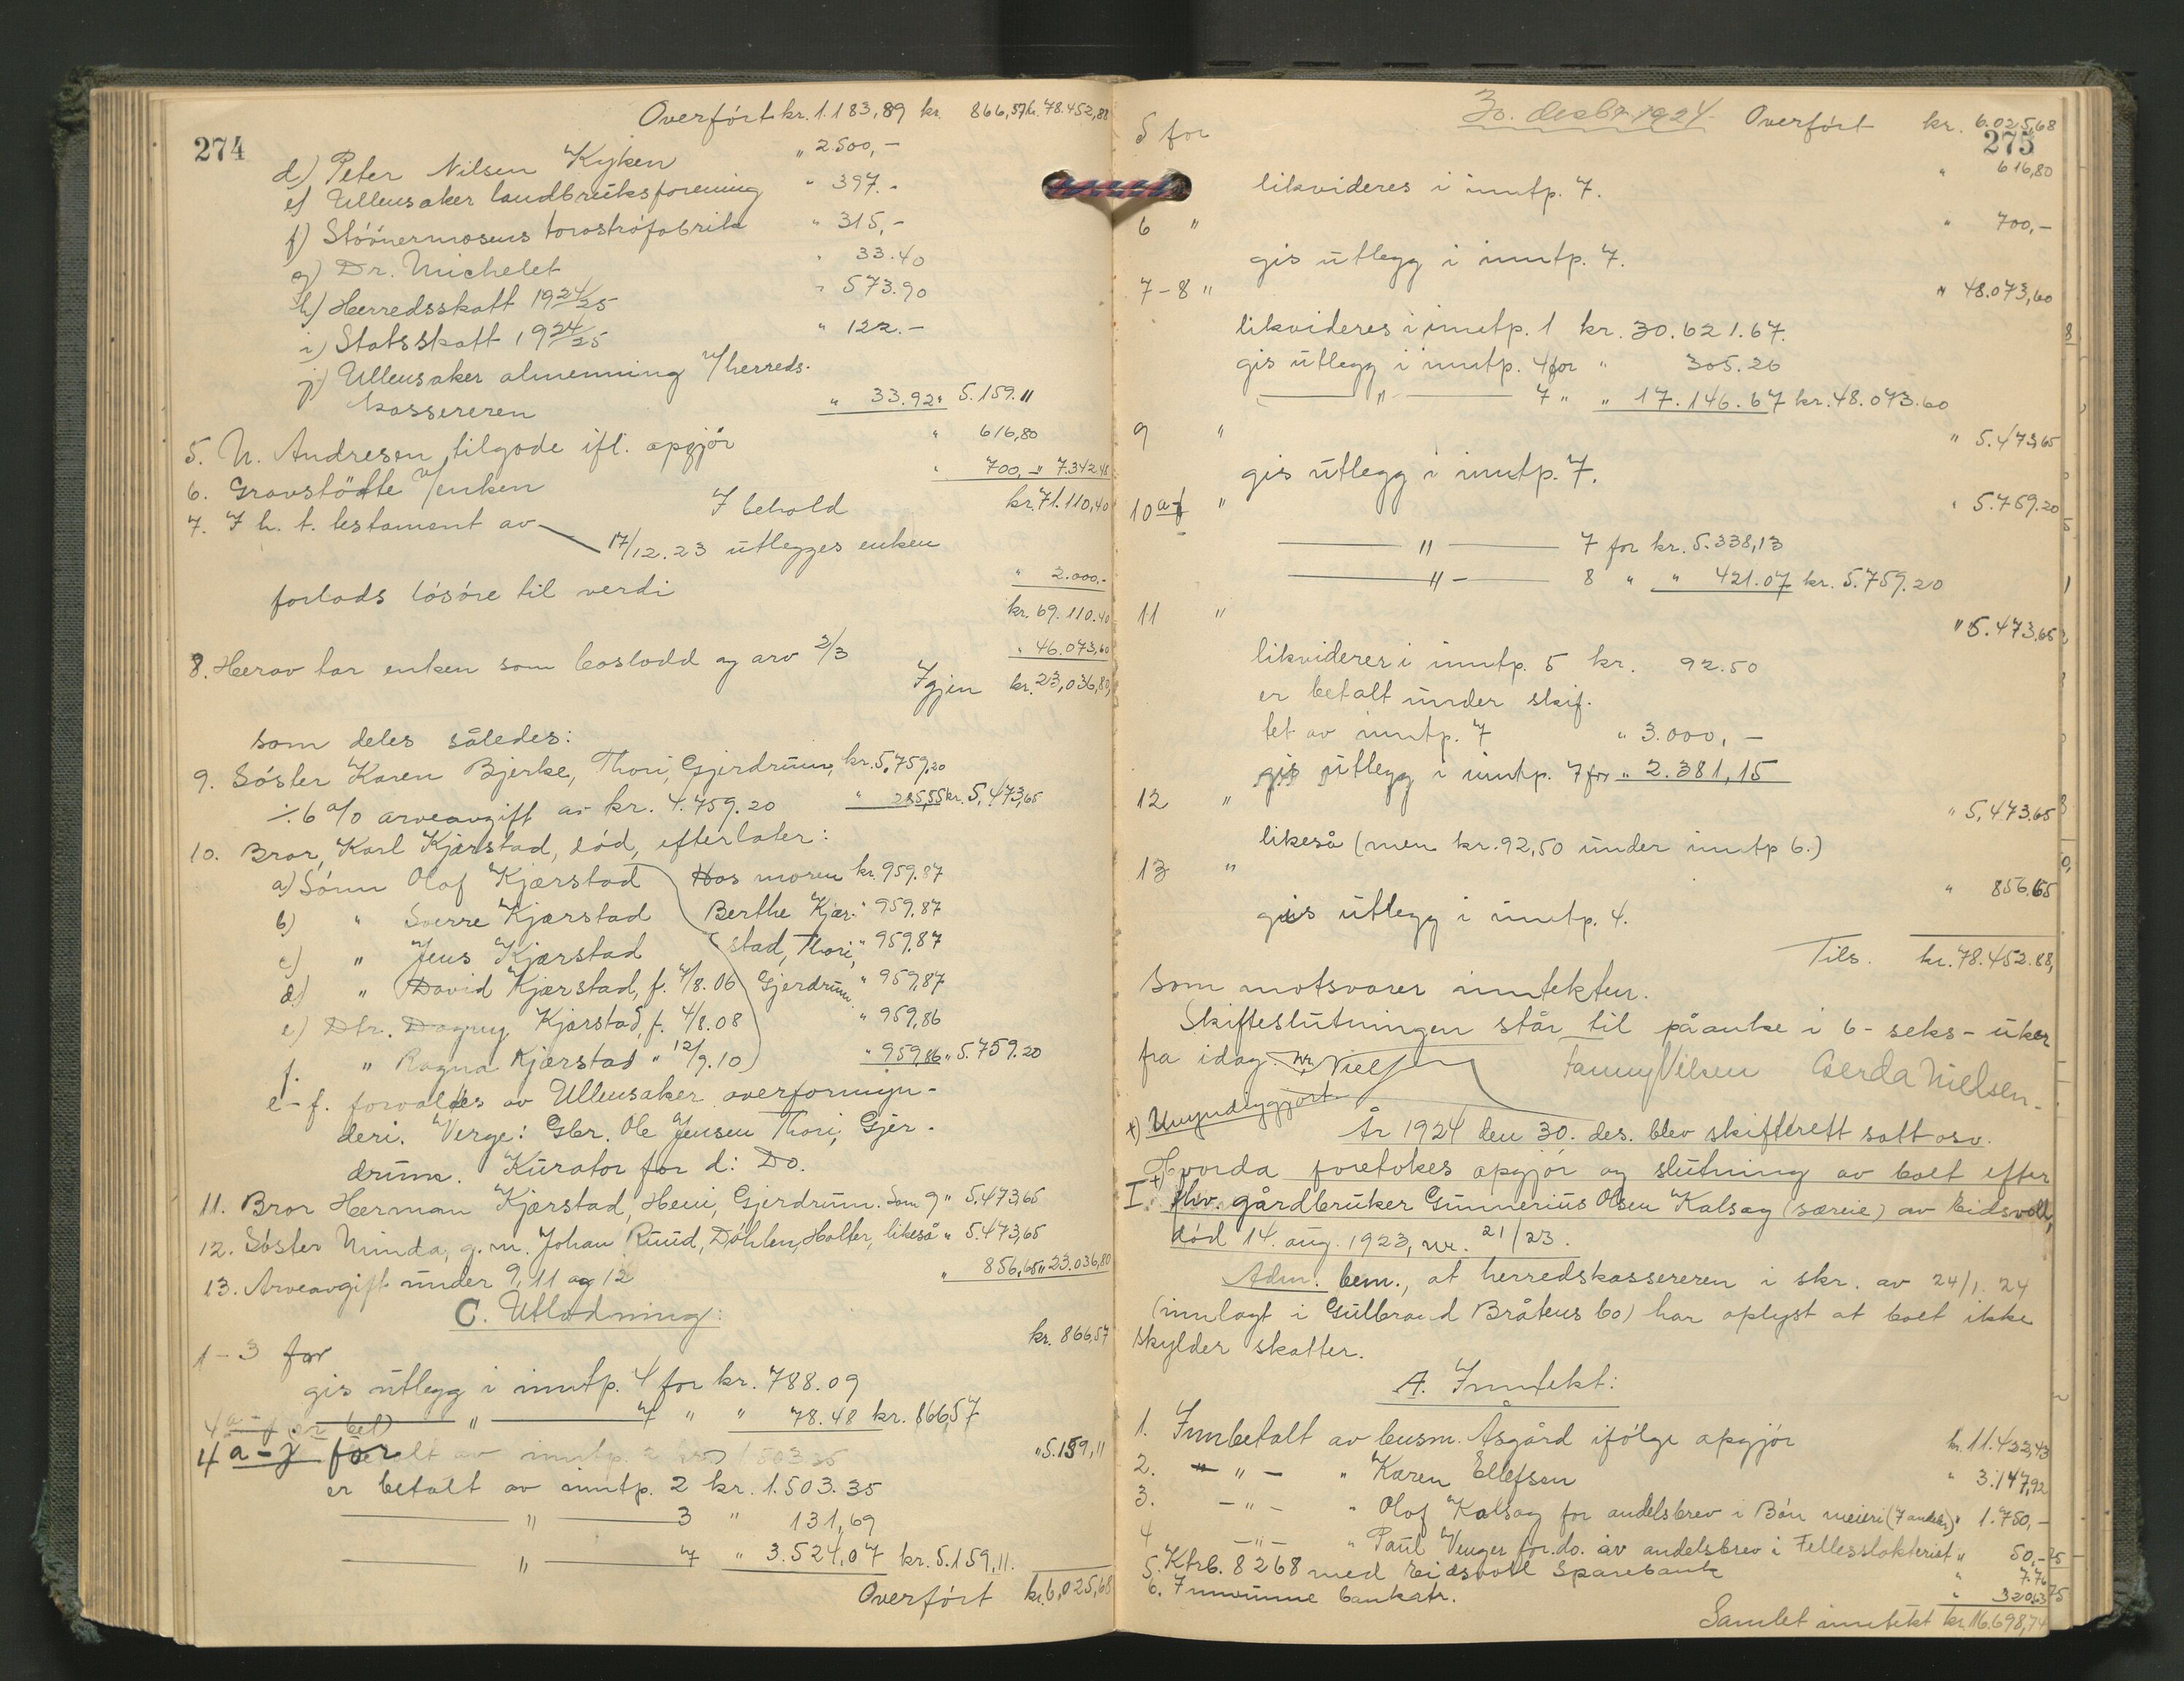 274
Overført kr. 1.183,89 kr. 866,57 kr. 78.452,88
d) Peter Nilsen Kyken " 2.500,-
e) Ullensaker landbruksforening " 397.-
f) Stóónermosens torvstrófabrik " 315,-
g) Dr. Michelet " 33.40
h) Herredsskatt 1924/25 " 573.90
i) Statsskatt 1924/25 " 122.-
j) Ullensaker almenning v/herreds-
kassereren " 33.92 " 5.159.11
5. N. Andresen tilgode ifl. opgjór " 616,80
6. Gravstötte v/enken " 700,- " 7.342.48
I behold kr. 71.110,40
7. I h. t. testament av
17/12.23 utlegges enken
forlods lósóre til verdi " 2.000.-
kr. 69.110.40
8. Herav tar enken som boslodd og arv 2/3 " 46.073,60
Igjen kr. 23,036,80
som deles således:
9. Sóster Karen Bjerke, Thori, Gjerdrum, kr. 5.759,20
÷ 6 % arveavgift av kr. 4.759.20 " 285,55 kr. 5,473,65
10. Bror, Karl Kjærstad, død, efterlater:
a) Sónn Olaf Kjærstad Hos moren kr. 959.87
b) " Sverre Kjærstad Berthe Kjær- " 959.87
c) " Jens Kjærstad stad, Thori, " 959.87
d) " David Kjærstad, f. 4/8.06 Gjerdrum. " 959,87
e) Dtr. Dagny Kjærstad, f. 4/8.08 " 959,86
f. " Ragna Kjærstad " 12/9.10 " 959,86 " 5.759.20
e-f. forvaltes av Ullensaker overformyn-
deri. Verge: Gbr. Ole Jensen Thori, Gjer-
drum. Kurator for d: Do.
11. Bror Herman Kjærstad, Heni, Gjerdrum. Som 9 " 5.473,65
12. Sóster Minda, g. m. Johan Ruud, Dóhlen, Holter, likeså " 5.473,65
13. Arveavgift under 9, 11 og 12 " 856,65 " 23.036,80
C. Utlodning:
1-3 for kr. 866,57
gis utlegg i inntp. 4 for kr. 788.09
" 7 " " 78.48 kr. 866,57
4 a-j for " 5.159,11
er betalt av inntp. 2 kr. 1.503.35
" 3 " 131,69
" 7 " 3.524,07 kr. 5.159,11.
Overført kr. 6,025,68
30. desbr 1924. Overført kr. 6.025,68
275
5 for " 616,80
likvideres i inntp. 7.
6 " " 700,-
gis utlegg i inntp. 7.
7-8 " " 48.073,60
likvideres i inntp. 1 kr. 30.621.67.
gis utlegg i inntp. 4 for " 305.26
" 7 " " 17.146.67 kr. 48.073.60
9 " " 5.473,65
gis utlegg i inntp. 7.
10 a-f " " 5.759.20
" 7 for kr. 5.338,13
" 8 " " 421.07 kr. 5.759.20
11 " " 5.473.65
likvideres i inntp. 5 kr. 92.50
er betalt under skif-
tet av inntp. 7 " 3.000,-
gis utlegg i inntp. 7 for " 2.381,15
12 " " 5,473.65
likeså (men kr. 92,50 under inntp 6.)
13 " " 856.65
gis utlegg i inntp. 4.
Tils. kr. 78.452.88,
som motsvarer inntekten.
Skifteslutningen står til påanke i 6-seks-uker
fra idag. Nielsen Fanny Nilsen Gerda Nielsen.
+) Umyndiggjort
År 1924 den 30. des. blev skifterett satt osv.
Hvorda foretokes opgjór og slutning av boet efter
I. +) fhv. gårdbruker Gunnerius Olsen Kalsag (særeie) av Eidsvoll,
død 14. aug. 1923, nr. 21/23.
Adm. bem., at herredskassereren i skr. av 24/1. 24
(innlagt i Gulbrand Bråtens bo) har oplyst at boet ikke
skylder skatter.
A. Inntekt:
1. Innbetalt av busm. Åsgård ifólge opgjór kr. 11.422,43
2. - " - " Karen Ellefsen " 3.147,92
3. - " - " Olaf Kalsag for andelsbrev i Bón meieri (7 andeler) " 1.750,-
4 - " - " Paul Venger for. do. av andelsbrev i Fellesslakteriet " 50,-
5. Ktrb. 8268 med Eidsvoll Sparebank " 7.76
6. Innvunne bankrtr. " 320,63
Samlet inntekt kr. 16.698,74